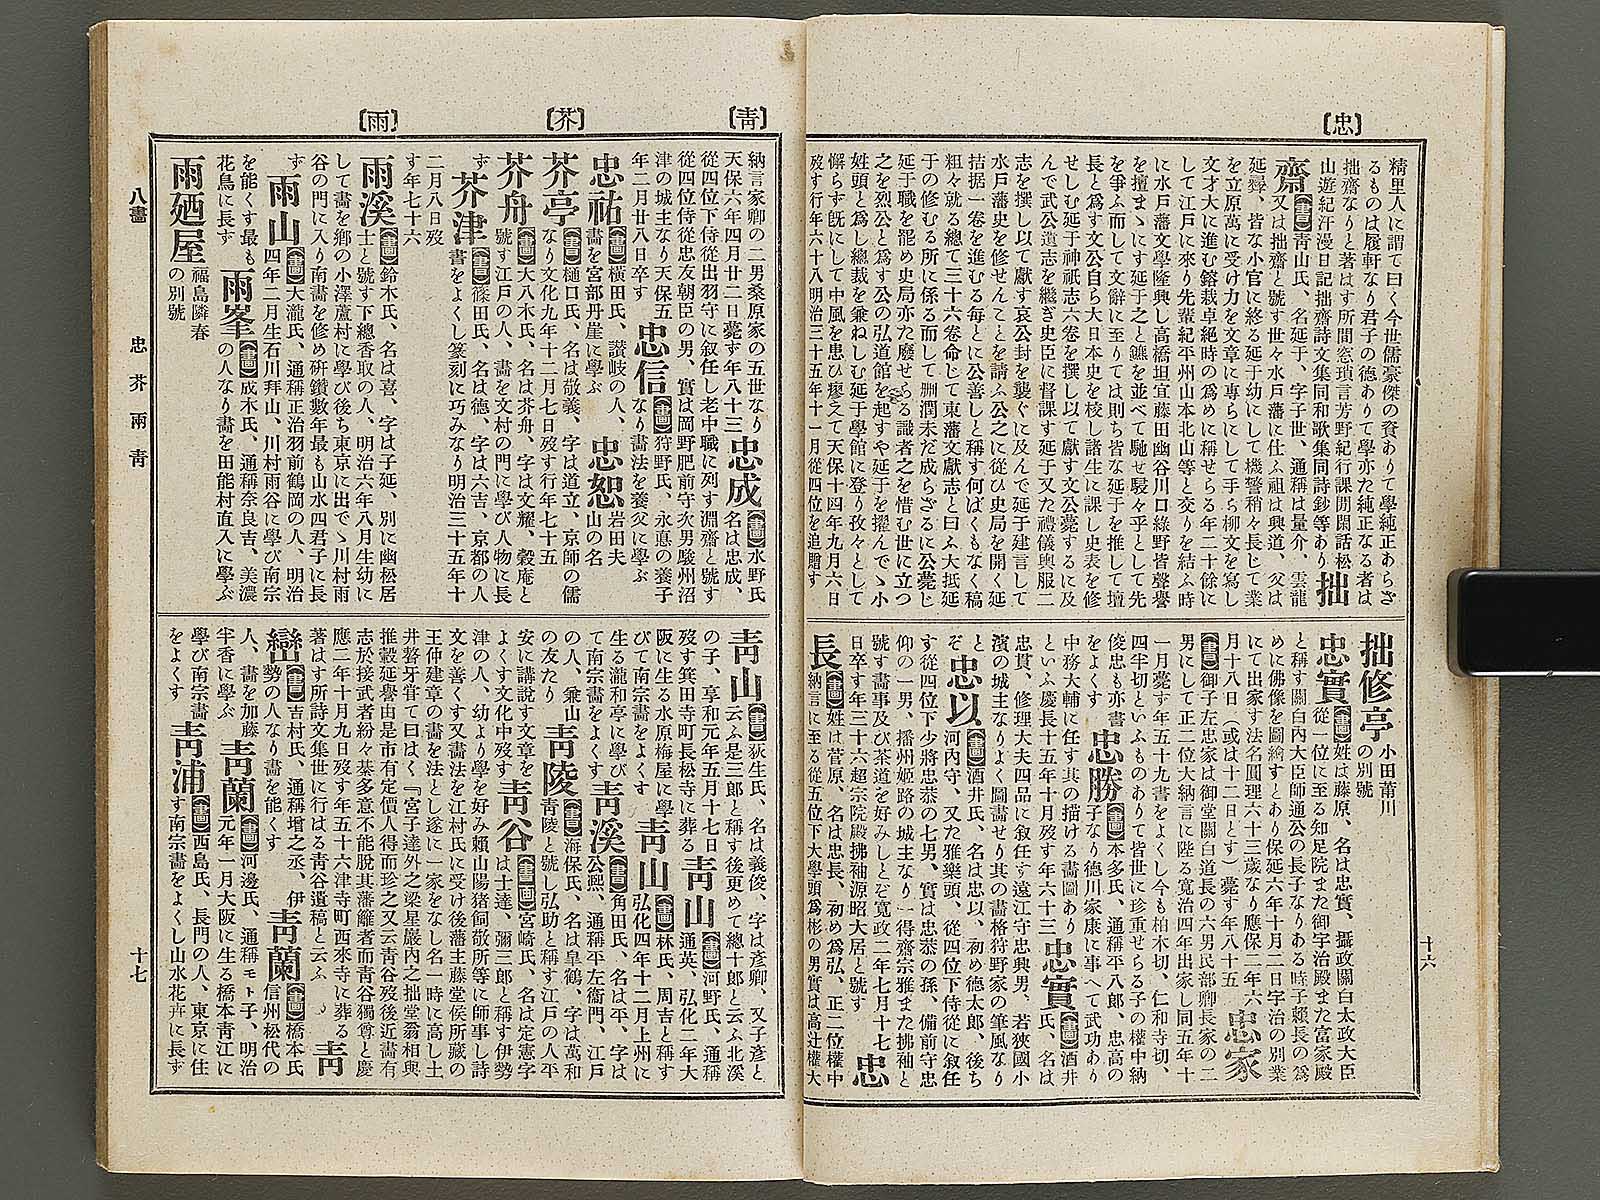 〔忠〕
精里人に謂て曰く今世儒豪傑の資ありて學純正あらざ
るものは履軒なり君子の德ありて學亦た純正なる者は
拙齋なりと著はす所間窓瑣言芳野紀行課閒閑話松
山遊紀汗漫日記拙齋詩文集同和歌集同詩鈔等あり 拙
齋【書】又は拙齋と號す世々水戸藩に仕ふ祖は興道、父は
延彛、皆な小官に終る延于幼にして機警稍々長じて業
を立原萬に受け力を文章に專らにして手ら柳文を寫し
文才大に進む鎔裁卓絶時の爲めに稱せらる年二十餘に
して江戸に來り先輩紀平州山本北山等と交りを結ふ時
に水戸藩文學隆興し高橋坦宣藤田幽谷川口綠野皆聲譽
を擅まゝにす延于之と鑣を並べて馳せ駸々乎として先
を爭ふ而して文辭に至りては則ち皆な延于を推して壇
長と爲す文公自ら大日本史を校し諸生に課し史表を修
せしむ延于神祇志六卷を撰し以て獻す文公薨するに及
んで武公遺志を繼ぎ史臣に督課す延于又た禮儀輿服二
志を撰し以て獻す哀公封を襲ぐに及んで延于建言して
水戸藩史を修せんことを請ふ公之に從ひ史局を開く延
拮据一卷を進むる毎とに公善しと稱す何ばくもなく稿
粗々就る總て三十六卷命じて東藩文獻志と曰ふ大抵延
于の修むる所に係る而して刪潤未だ成らざるに公薨じ
延于職を罷め史局亦た廢せらる識者之を惜む世に立つ
之を烈公と爲す公の弘道館を起すや延于を擢んでゝ小
姓頭と爲し總裁を兼ねしむ延于學館に登り孜々として
懈らず既にして中風を患ひ瘳えて天保十四年九月六日
歿す行年六十八明治三十五年十一月從四位を追贈す
拙修亭 小田莆川の別號
忠實【書】姓は藤原、名は忠實、攝政關白太政大臣
從一位に至る知足院また御宇治殿また富家殿
と稱す關白內大臣師通公の長子なりある時子賴長の爲
めに佛像を圖繪すとあり保延六年十月二日宇治の別業
にて出家す法名圓理六十三歲なり應保二年六
月十八日（或は十二日とす）薨す年八十五 忠家
【書】御子左忠家は御堂關白道長の六男民部卿長家の二
男にして正二位大納言に陞る寬治四年出家し同五年十
一月薨ず年五十九書をよくし今も柏木切、仁和寺切、
四半切といふものありて皆世に珍重せらる子の權中納
俊忠も亦書をよくす 忠勝【畫】本多氏、通稱平八郎、忠高の
子なり德川家康に事へて武功あり
中務大輔に任す其の描ける畫圖あり
といふ慶長十五年十月歿す年六十三 忠實【畫】酒井氏、名は
忠貫、修理大夫四品に叙任す遠江守忠興男、若狹國小
濱の城主なりよく圖畫せり其の畫格狩野家の筆風なり
と ぞ 忠以【畫】酒井氏、名は忠以、初め德太郎、後ち
河內守、又た雅樂頭、從四位下侍從に叙任
す從四位下少將忠恭の七男、實は忠恭の孫、備前守忠
仰の一男、播州姬路の城主なり一得齋宗雅また拂袖と
號す畫事及び茶道を好みしとぞ寬政二年七月十七
日卒す年三十六超宗院殿拂袖源昭大居と號す 忠
長【畫】姓は菅原、名は忠長、初め爲弘、正二位權中
納言に至る從五位下大學頭爲彬の男實は高辻權大
十六
〔靑〕
〔芥〕
〔雨〕
納言家卿の二男桑原家の五世なり
天保六年四月廿二日薨す年八十三 忠成【畫】水野氏
名は忠成、
從四位下侍從出羽守に叙任し老中職に列す淵齋と號す
從四位侍從忠友朝臣の男、實は岡野肥前守次男駿州沼
津の城主なり天保五年二月廿八日卒す 忠信【畫】狩野氏、永悳の養子
なり畫法を養父に學ぶ
忠祐【畫】橫田氏、讃岐の人、畫を宮部丹崖に學ぶ 忠恕 岩田夫山の名
芥亭【畫】樋口氏、名は敬義、字は道立、京師の儒
なり文化九年十二月七日歿す行年七十五
芥舟【畫】大八木氏、名は芥舟、字は文耀、穀庵と
號す江戸の人、畫を文村の門に學び人物に長
ず 芥津【書】篠田氏、名は德、字は六吉、京都の人
書をよくし篆刻に巧みなり明治三十五年十
二月八日歿
す年七十六
雨溪【畫】鈴木氏、名は喜、字は子延、別に幽松居
士と號す下總香取の人、明治六年八月生幼に
して畫を鄉の小澤蘆村に學び後ち東京に出でゝ川村雨
谷の門に入り南畫を修め硏鑽數年最も山水四君子に長
ず 雨山【畫】大瀧氏、通稱正治羽前鶴岡の人、明治
四年二月生石川拜山、川村雨谷に學び南宗
を能くす最も花鳥に長す 雨峯【畫】成木氏、通稱奈良吉、美濃
の人なり畫を田能村直入に學ぶ
雨廼屋 福島隣春の別號
靑山【書】荻生氏、名は義俊、字は彥卿、又子彥と
云ふ是三郎と稱す後更めて總十郎と云ふ北溪
の子、享和元年五月十七日
歿す箕田寺町長松寺に葬る 靑山【畫】河野氏、通稱
通英、弘化二年大
阪に生る水原梅屋に學
びて南宗畫をよくす 靑山【畫】林氏、周吉と稱す
弘化四年十二月上州に
生る瀧和亭に學び
て南宗畫をよくす 靑溪【書】角田氏、名は平、字は
公熙、通稱平左衞門、江戸
の人、乘山
の友たり 靑陵【書】海保氏、名は皐鶴、字は萬和
靑陵と號し弘助と稱す江戸の人平
安に講說す文章を
よくす文化中歿す 靑谷【書】【画】宮崎氏、名は定憲字
は士達、彌三郎と稱す伊勢
津の人、幼より學を好み賴山陽猪飼敬所等に師事し詩
文を善くす又畫法を江村氏に受け後藩主藤堂侯所藏の
王仲建章の畫を法とし遂に一家をなし名一時に高し土
井聱牙甞て曰はく『宮子達外之梁星巖內之拙堂翁相與
推轂延譽由是市有定價人得而珍之又云靑谷歿後近畫有
志於接武者紛々蓁多意不能脫其藩籬者而靑谷獨尊と慶
應二年十月九日歿す年五十六津寺町西來寺に葬る
著はす所詩文集世に行はる靑谷遺稿と云ふ 靑
巒【書】吉村氏、通稱增之丞、伊
勢の人なり畫を能くす 靑蘭【畫】橋本氏
信州松代の
人、畫を加藤
半香に學ぶ 靑蘭【畫】河邊氏、通稱モト子、明治
元年一月大阪に生る橋本靑江に
學び南宗畫
をよくす 靑浦【畫】西島氏、長門の人、東京に住
す南宗畫をよくし山水花卉に長ず
八畫
忠 芥 雨 靑
十七